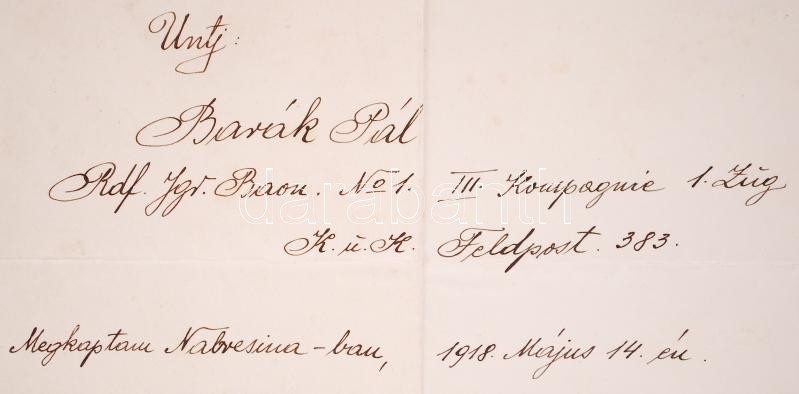 Untj:
Barák Pál
Rdf. Jgr. Baon. No 1. III. Kompagnie 1. Zug
K. u. K. Feldpost. 383.
Megkaptam Nabresina-ban, 1918. Május 14. én.
darabanth